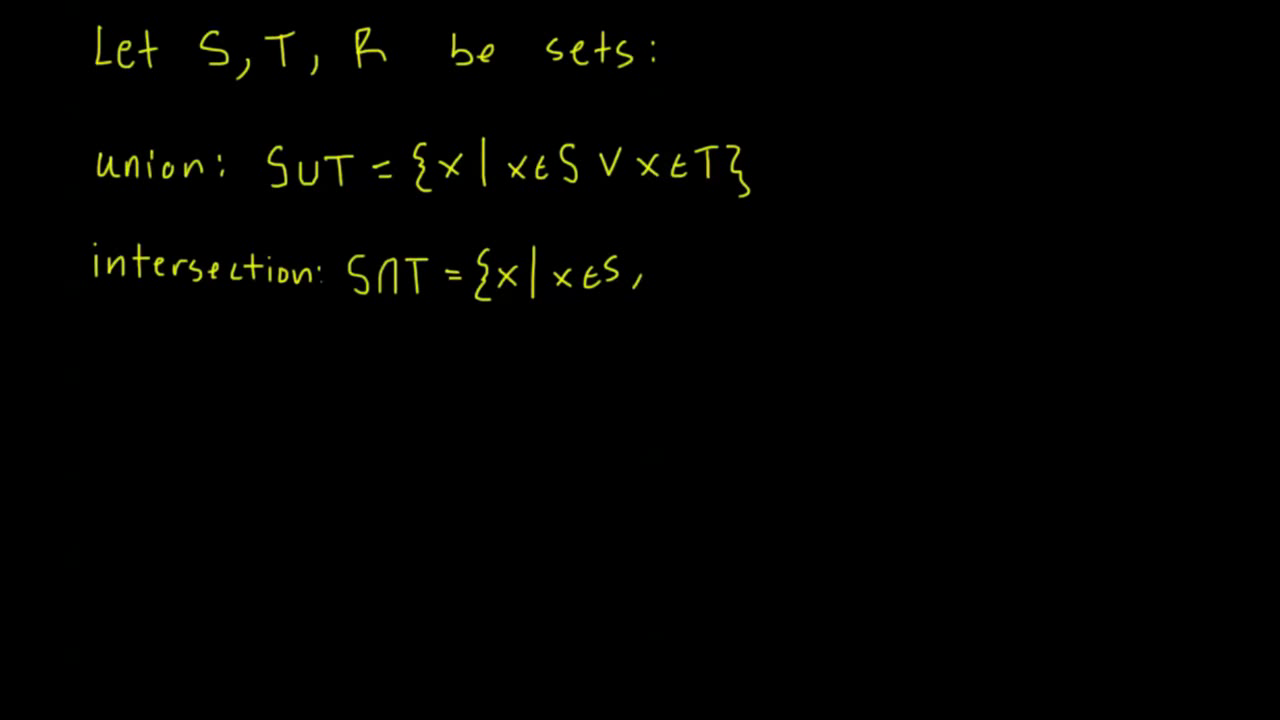 Let S, T, R be sets:
union: S∪T = {x | x∈S ∨ x∈T}
intersection: S∩T = {x | x∈S ,